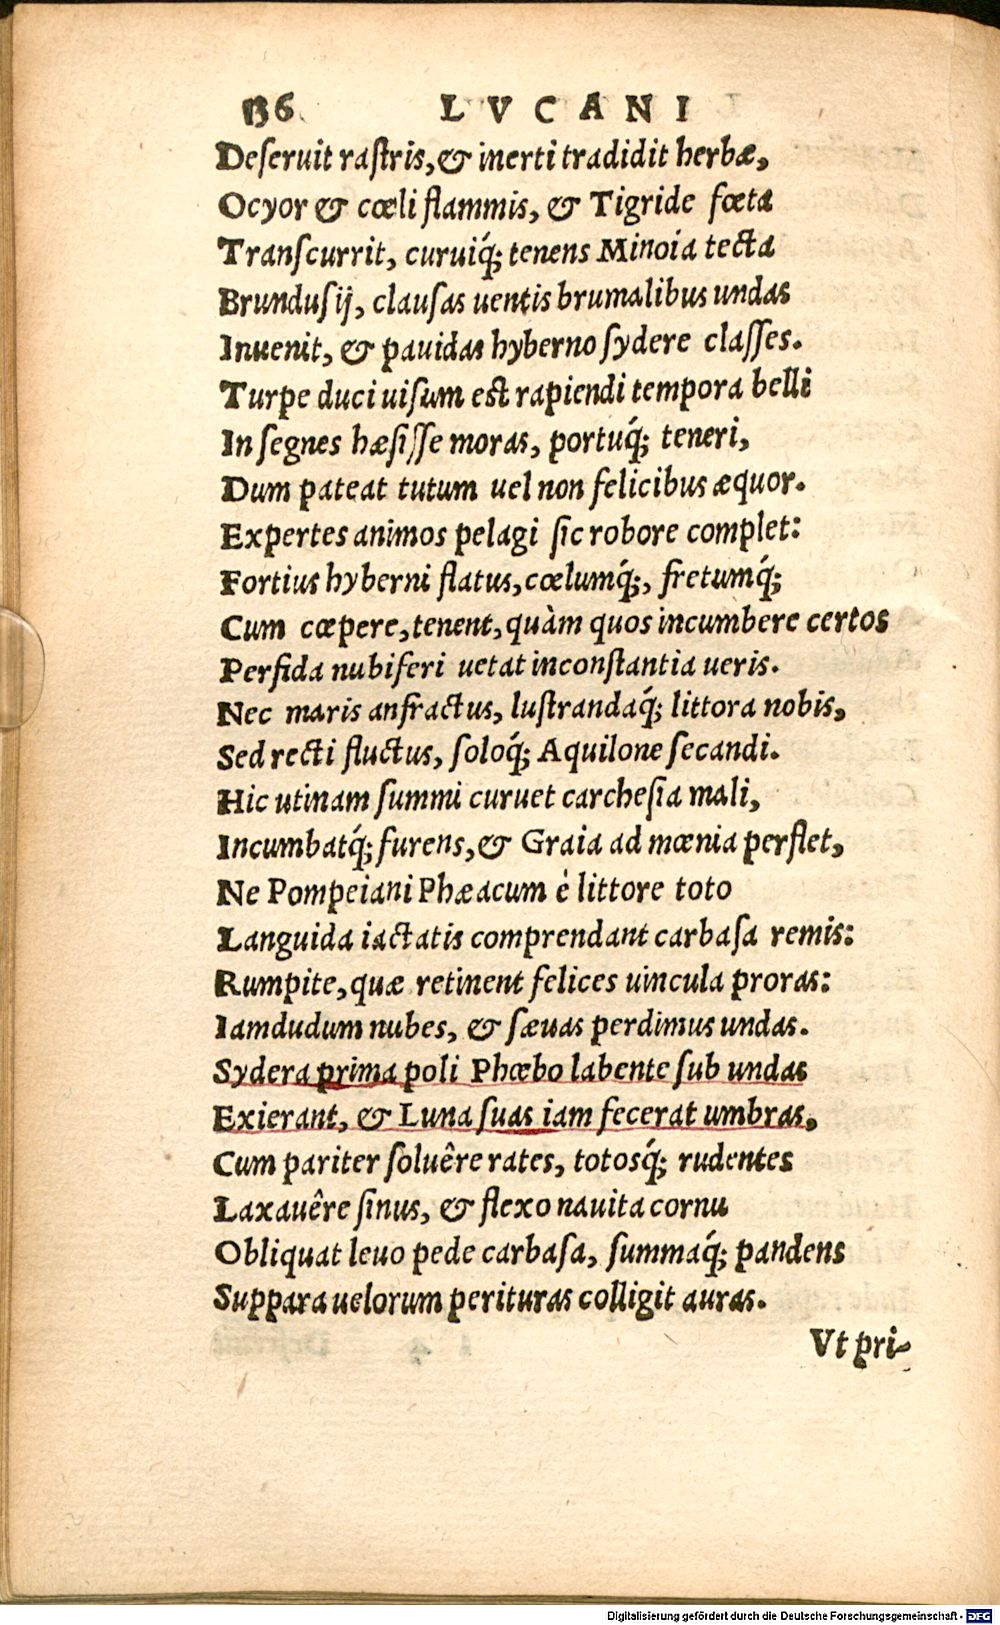 136 LVCANI
Deseruit rastris, & inerti tradidit herbæ,
Ocyor & cœli flammis, & Tigride fœta
Transcurrit, curuiq́; tenens Minoia tecta
Brundusij, clausas uentis brumalibus undas
Inuenit, & pauidas hyberno sydere classes.
Turpe duci uisum est rapiendi tempora belli
In segnes hæsisse moras, portuq́; teneri,
Dum pateat tutum uel non felicibus æquor.
Expertes animos pelagi sic robore complet:
Fortius hyberni flatus, cœlumq́;, fretumq́;
Cum cœpere, tenent, quàm quos incumbere certos
Perfida nubiferi uetat inconstantia ueris.
Nec maris anfractus, lustrandaq́; littora nobis,
Sed recti fluctus, soloq́; Aquilone secandi.
Hic utinam summi curuet carchesia mali,
Incumbatq́; furens, & Graia ad mœnia perflet,
Ne Pompeiani Phæacum è littore toto
Languida iactatis comprendant carbasa remis:
Rumpite, quæ retinent felices uincula proras:
Iamdudum nubes, & sæuas perdimus undas.
Sydera prima poli Phœbo labente sub undas
Exierant, & Luna suas iam fecerat umbras,
Cum pariter soluêre rates, totosq́; rudentes
Laxauêre sinus, & flexo nauita cornu
Obliquat leuo pede carbasa, summaq́; pandens
Suppara uelorum perituras colligit auras.
Vt pri-
Digitalisierung gefördert durch die Deutsche Forschungsgemeinschaft - DFG